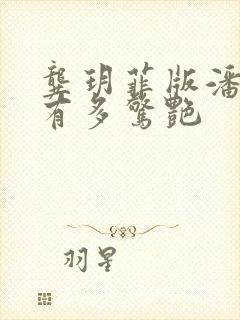 龔玥菲版潘
有多驚艷
羽星